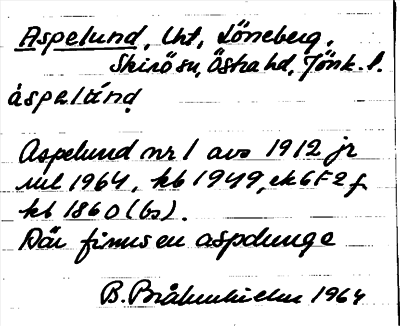 Aspelund, Uht, Löneberg,
Skirö sn, Östra hd, Jönk. l.
àspelúnḍ
Aspelund nr 1 avs 1912 jr
rul 1964, kb 1949, ek 6F2 f
kb 1860 (bs).
Där finns en aspdunge
B. 1964